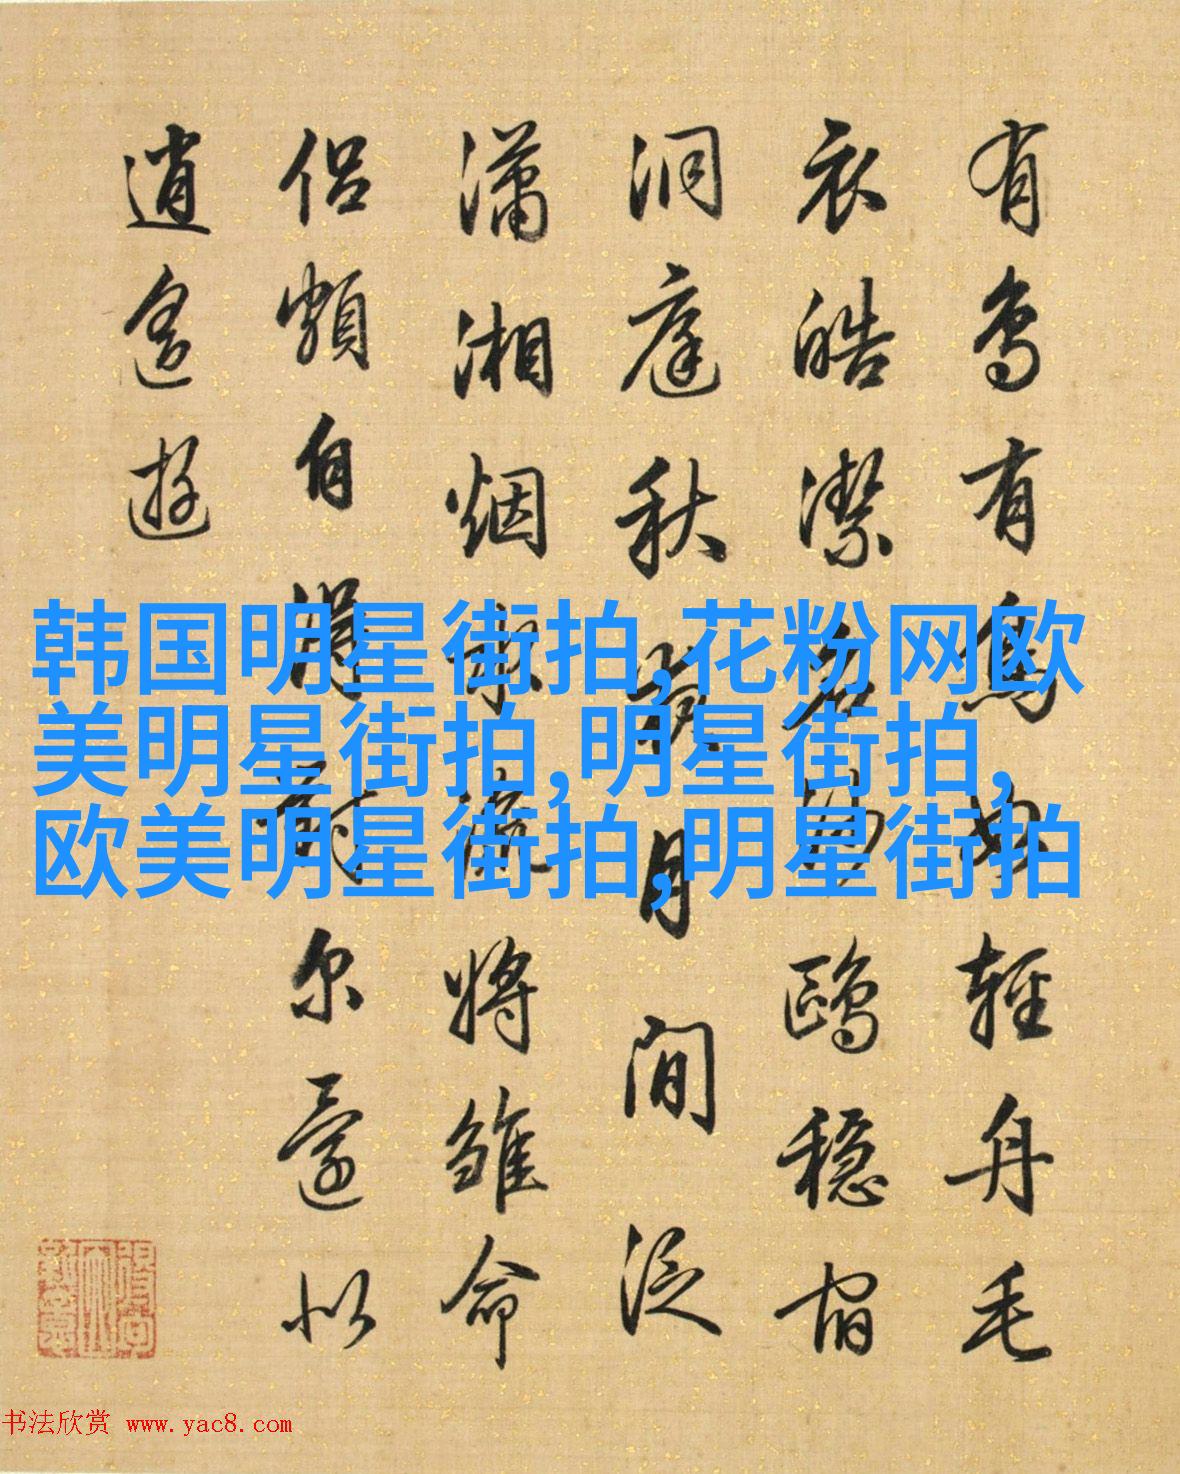 有鳥有鳥如輕舟毛
衣皓潔名鷗穩宿
洞庭秋月間泛
瀟湘烟將雛命
侣頻自尔以
逍遙遊
韩国明星街拍,花粉网欧
美明星街拍,明星街拍,
欧美明星街拍,明星街拍
书法欣赏 www.yac8.com